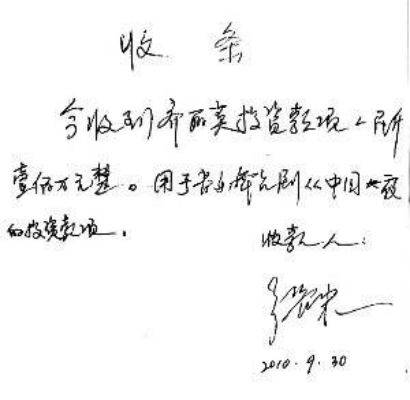 收 条
今收到齐丽英投资款项人民币
壹佰万元整。用于音乐舞台剧《中国之夜
的投资款项。
收款人：
2010.9.30